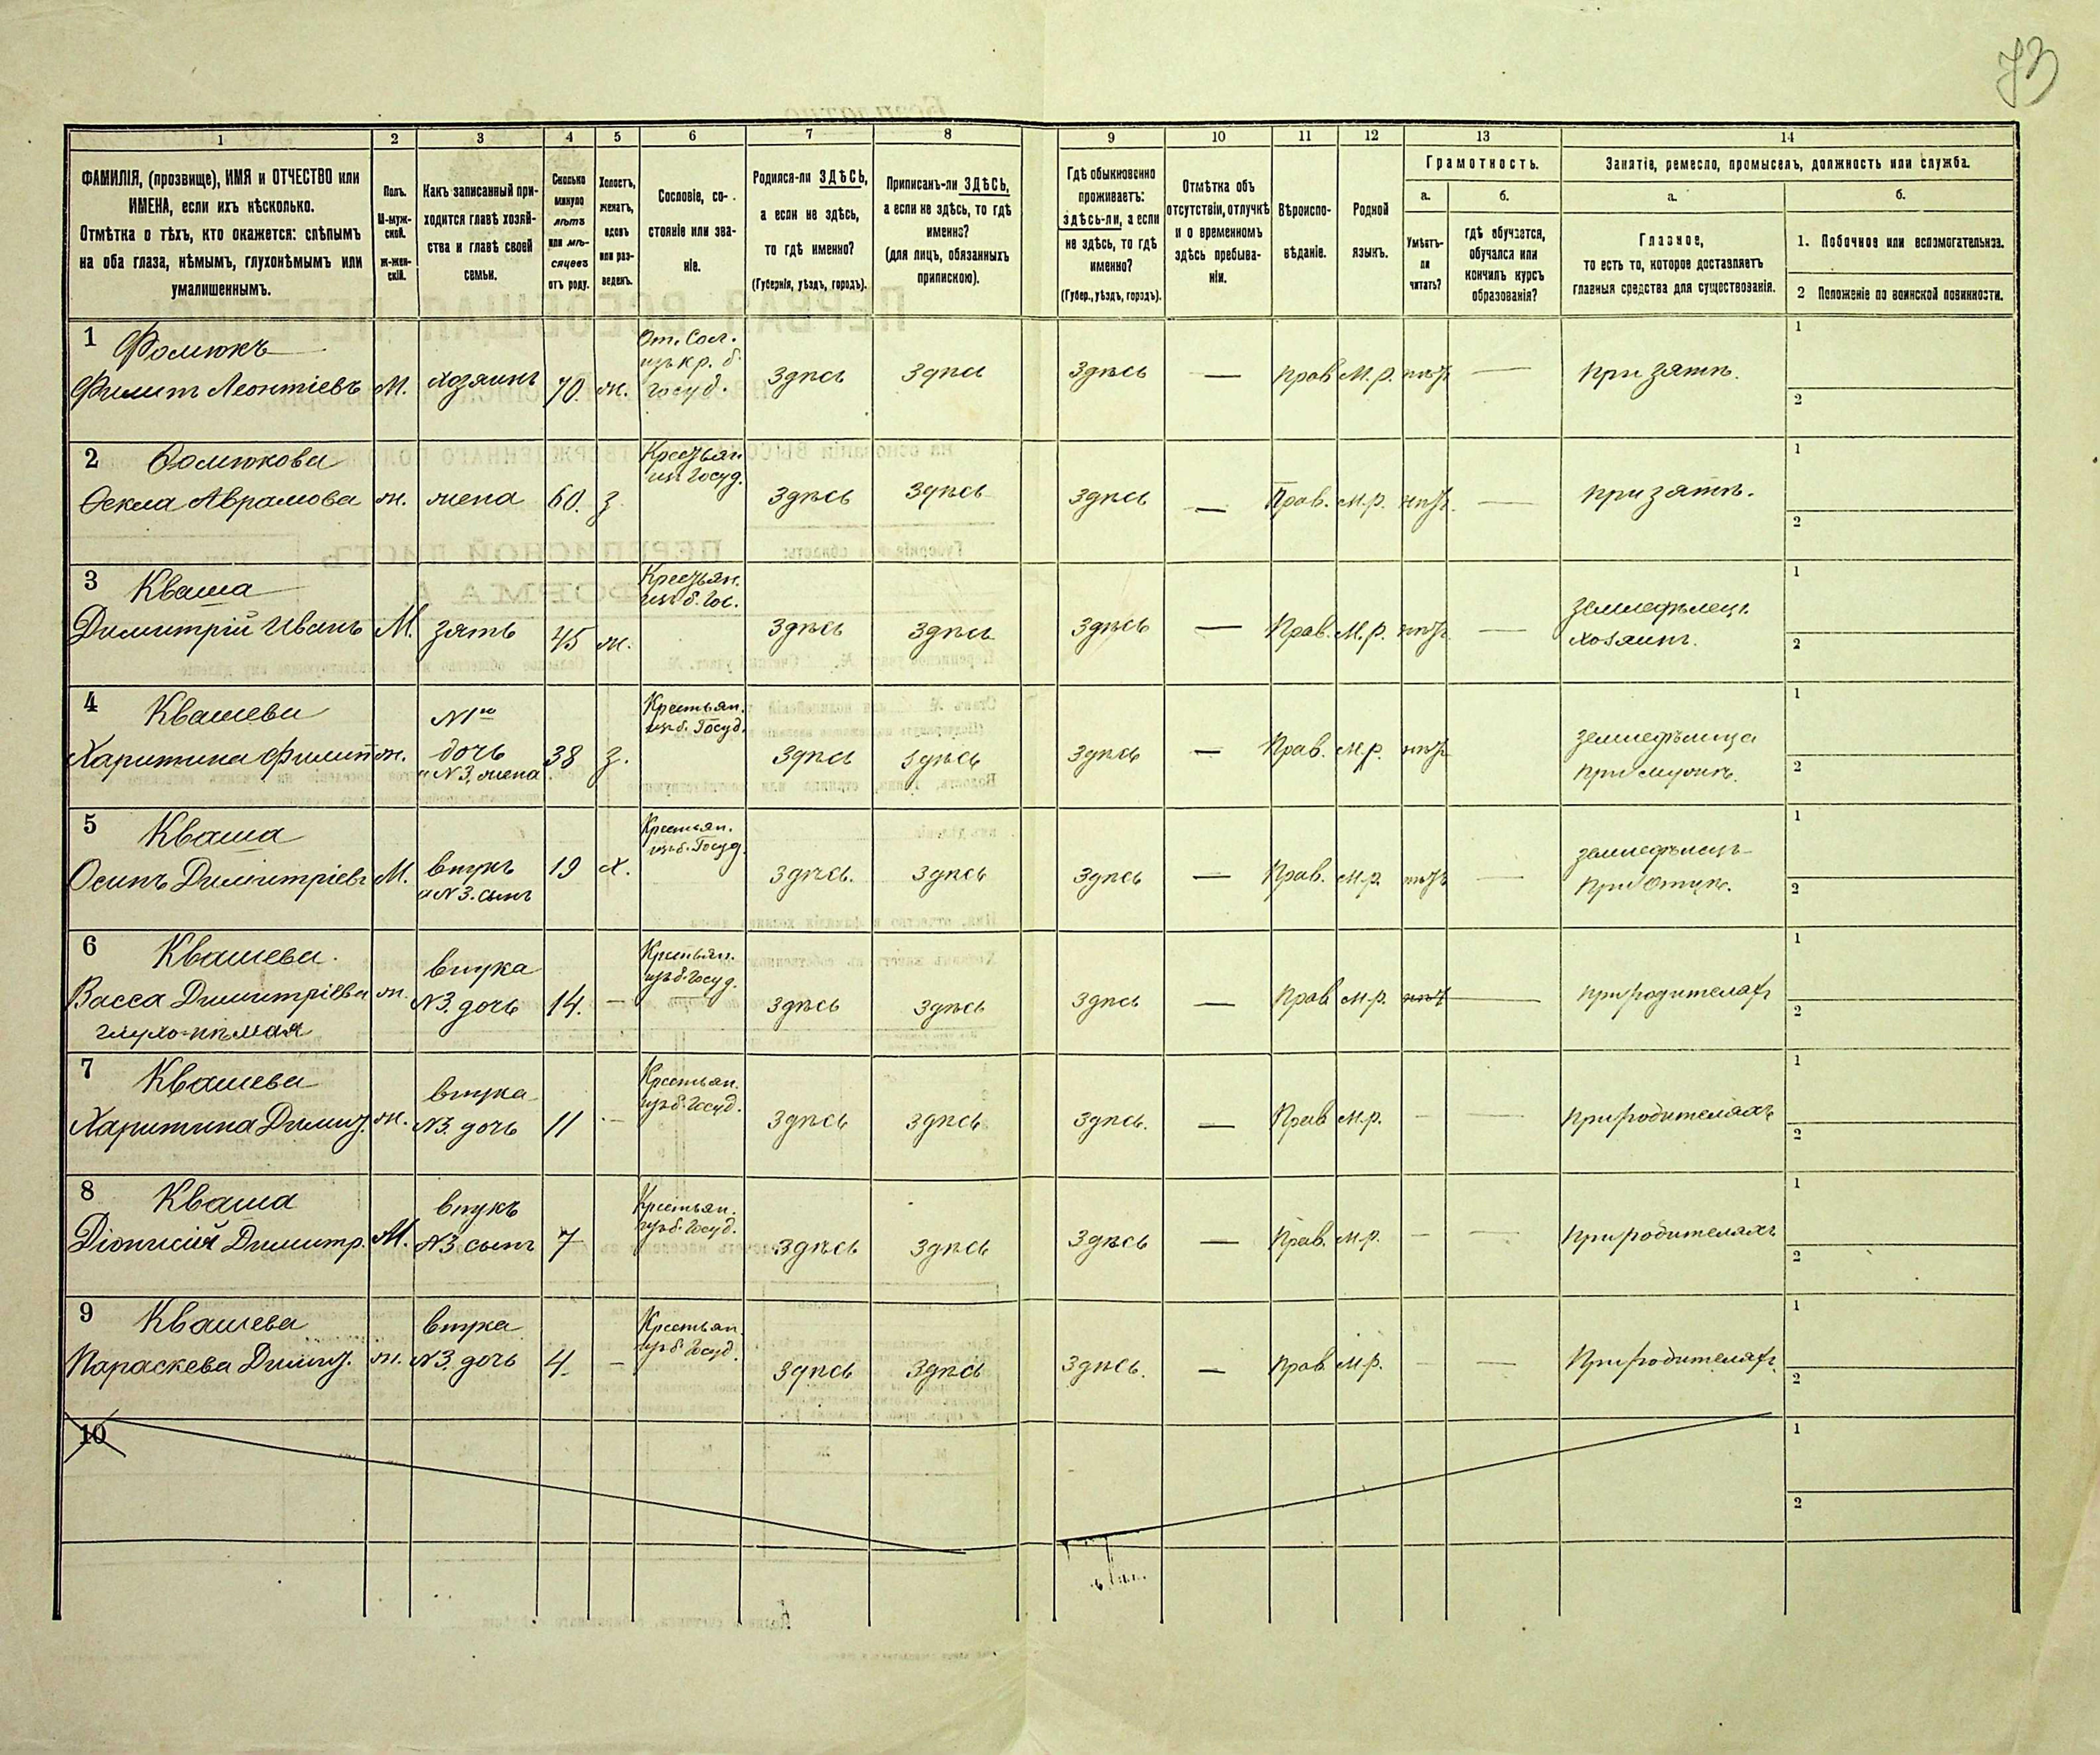 73
1 2 3 4 5 6 7 8 9 10 11 12 13 14
ФАМИЛІЯ, (прозвище), ИМЯ и ОТЧЕСТВО или
ИМЕНА, если ихъ нѣсколько.
Отмѣтка о тѣхъ, кто окажется: слѣпымъ
на оба глаза, нѣмымъ, глухонѣмымъ или
умалишеннымъ.
Полъ.
М-муж-
ской.
Ж-жен-
скій.
Какъ записанный при-
ходится главѣ хозяй-
ства и главѣ своей
семьи.
Сколько
минуло
лѣтъ
или мѣ-
сяцевъ
отъ роду.
Холостъ,
женатъ,
вдовъ
или раз-
веденъ.
Сословіе, со-
стояніе или зва-
ніе.
Родился-ли ЗДѢСЬ,
а если не здѣсь,
то гдѣ именно?
(Губернія, уѣздъ, городъ).
Приписанъ-ли ЗДѢСЬ,
а если не здѣсь, то гдѣ
именно?
(для лицъ, обязанныхъ
припискою).
Гдѣ обыкновенно
проживаетъ:
здѣсь-ли, а если
не здѣсь, то гдѣ
именно?
(Губер., уѣздъ, городъ).
Отмѣтка объ
отсутствіи, отлучкѣ
и о временномъ
здѣсь пребыва-
ніи.
Вѣроиспо-
вѣданіе.
Родной
языкъ.
Грамотность.
а. б.
Умѣетъ-
ли
читать?
гдѣ обучается,
обучался или
кончилъ курсъ
образованія?
Занятіе, ремесло, промыселъ, должность или служба.
а. б.
Главное,
то есть то, которое доставляетъ
главныя средства для существованія.
1. Побочное или вспомогательное.
2 Положеніе по воинской повинности.
1 Фомюкъ От. Сол. 1
изъ кр. б.
Филипъ Леонтіевъ М. хозяинъ 70. ж. Госуд. Здѣсь Здѣсь Здѣсь — Прав М.р. нѣтъ — при зятѣ.
2
2 Фомюкова Крестьян. 1
из Госуд.
Ѳекла Аврамова ж. жена 60. з. Здѣсь Здѣсь Здѣсь — Прав. м.р. нѣтъ — при зятѣ.
2
3 Кваша Крестьян. 1
из б. Гос.
Димитрій Иванъ М. зять 45 ж. Здѣсь Здѣсь Здѣсь — Прав. М.р. нѣтъ — земледѣлецъ
хозяинъ. 2
4 Квашева №1го Крестьян. 1
из б. Госуд.
Харитина Филип ж. дочь 38 з. Здѣсь Здѣсь Здѣсь — Прав. м.р. нѣтъ земледѣлица
и №3, жена при мужѣ. 2
5 Кваша Крестьян. 1
из б. Госуд.
Осипъ Димитріевъ М. внукъ 19 х. Здѣсь. Здѣсь Здѣсь — Прав. м.р. нѣтъ — земледѣлецъ
и №3. сынъ при отцѣ. 2
6 Квашева. внука Крестьян. 1
из б. Госуд.
Васса Димитріева ж. №3. дочь 14. — Здѣсь Здѣсь Здѣсь — Прав м.р. нѣтъ — при родителяхъ
глухо-нѣмая 2
7 Квашева внука Крестьян. 1
из б. Госуд.
Харитина Димит. ж. №3. дочь 11 — Здѣсь Здѣсь Здѣсь. — Прав м.р. — — При родителяхъ
2
8 Кваша внукъ Крестьян. 1
из б. Госуд.
Діонисій Димитр. М. №3 сынъ 7 Здѣсь Здѣсь Здѣсь — Прав. м.р. — — При родителяхъ
2
9 Квашева внука Крестьян. 1
из б. Госуд.
Параскева Димит. ж. №3. дочь 4 — Здѣсь Здѣсь Здѣсь. — Прав. м.р. — — При родителяхъ.
2
10 1
2